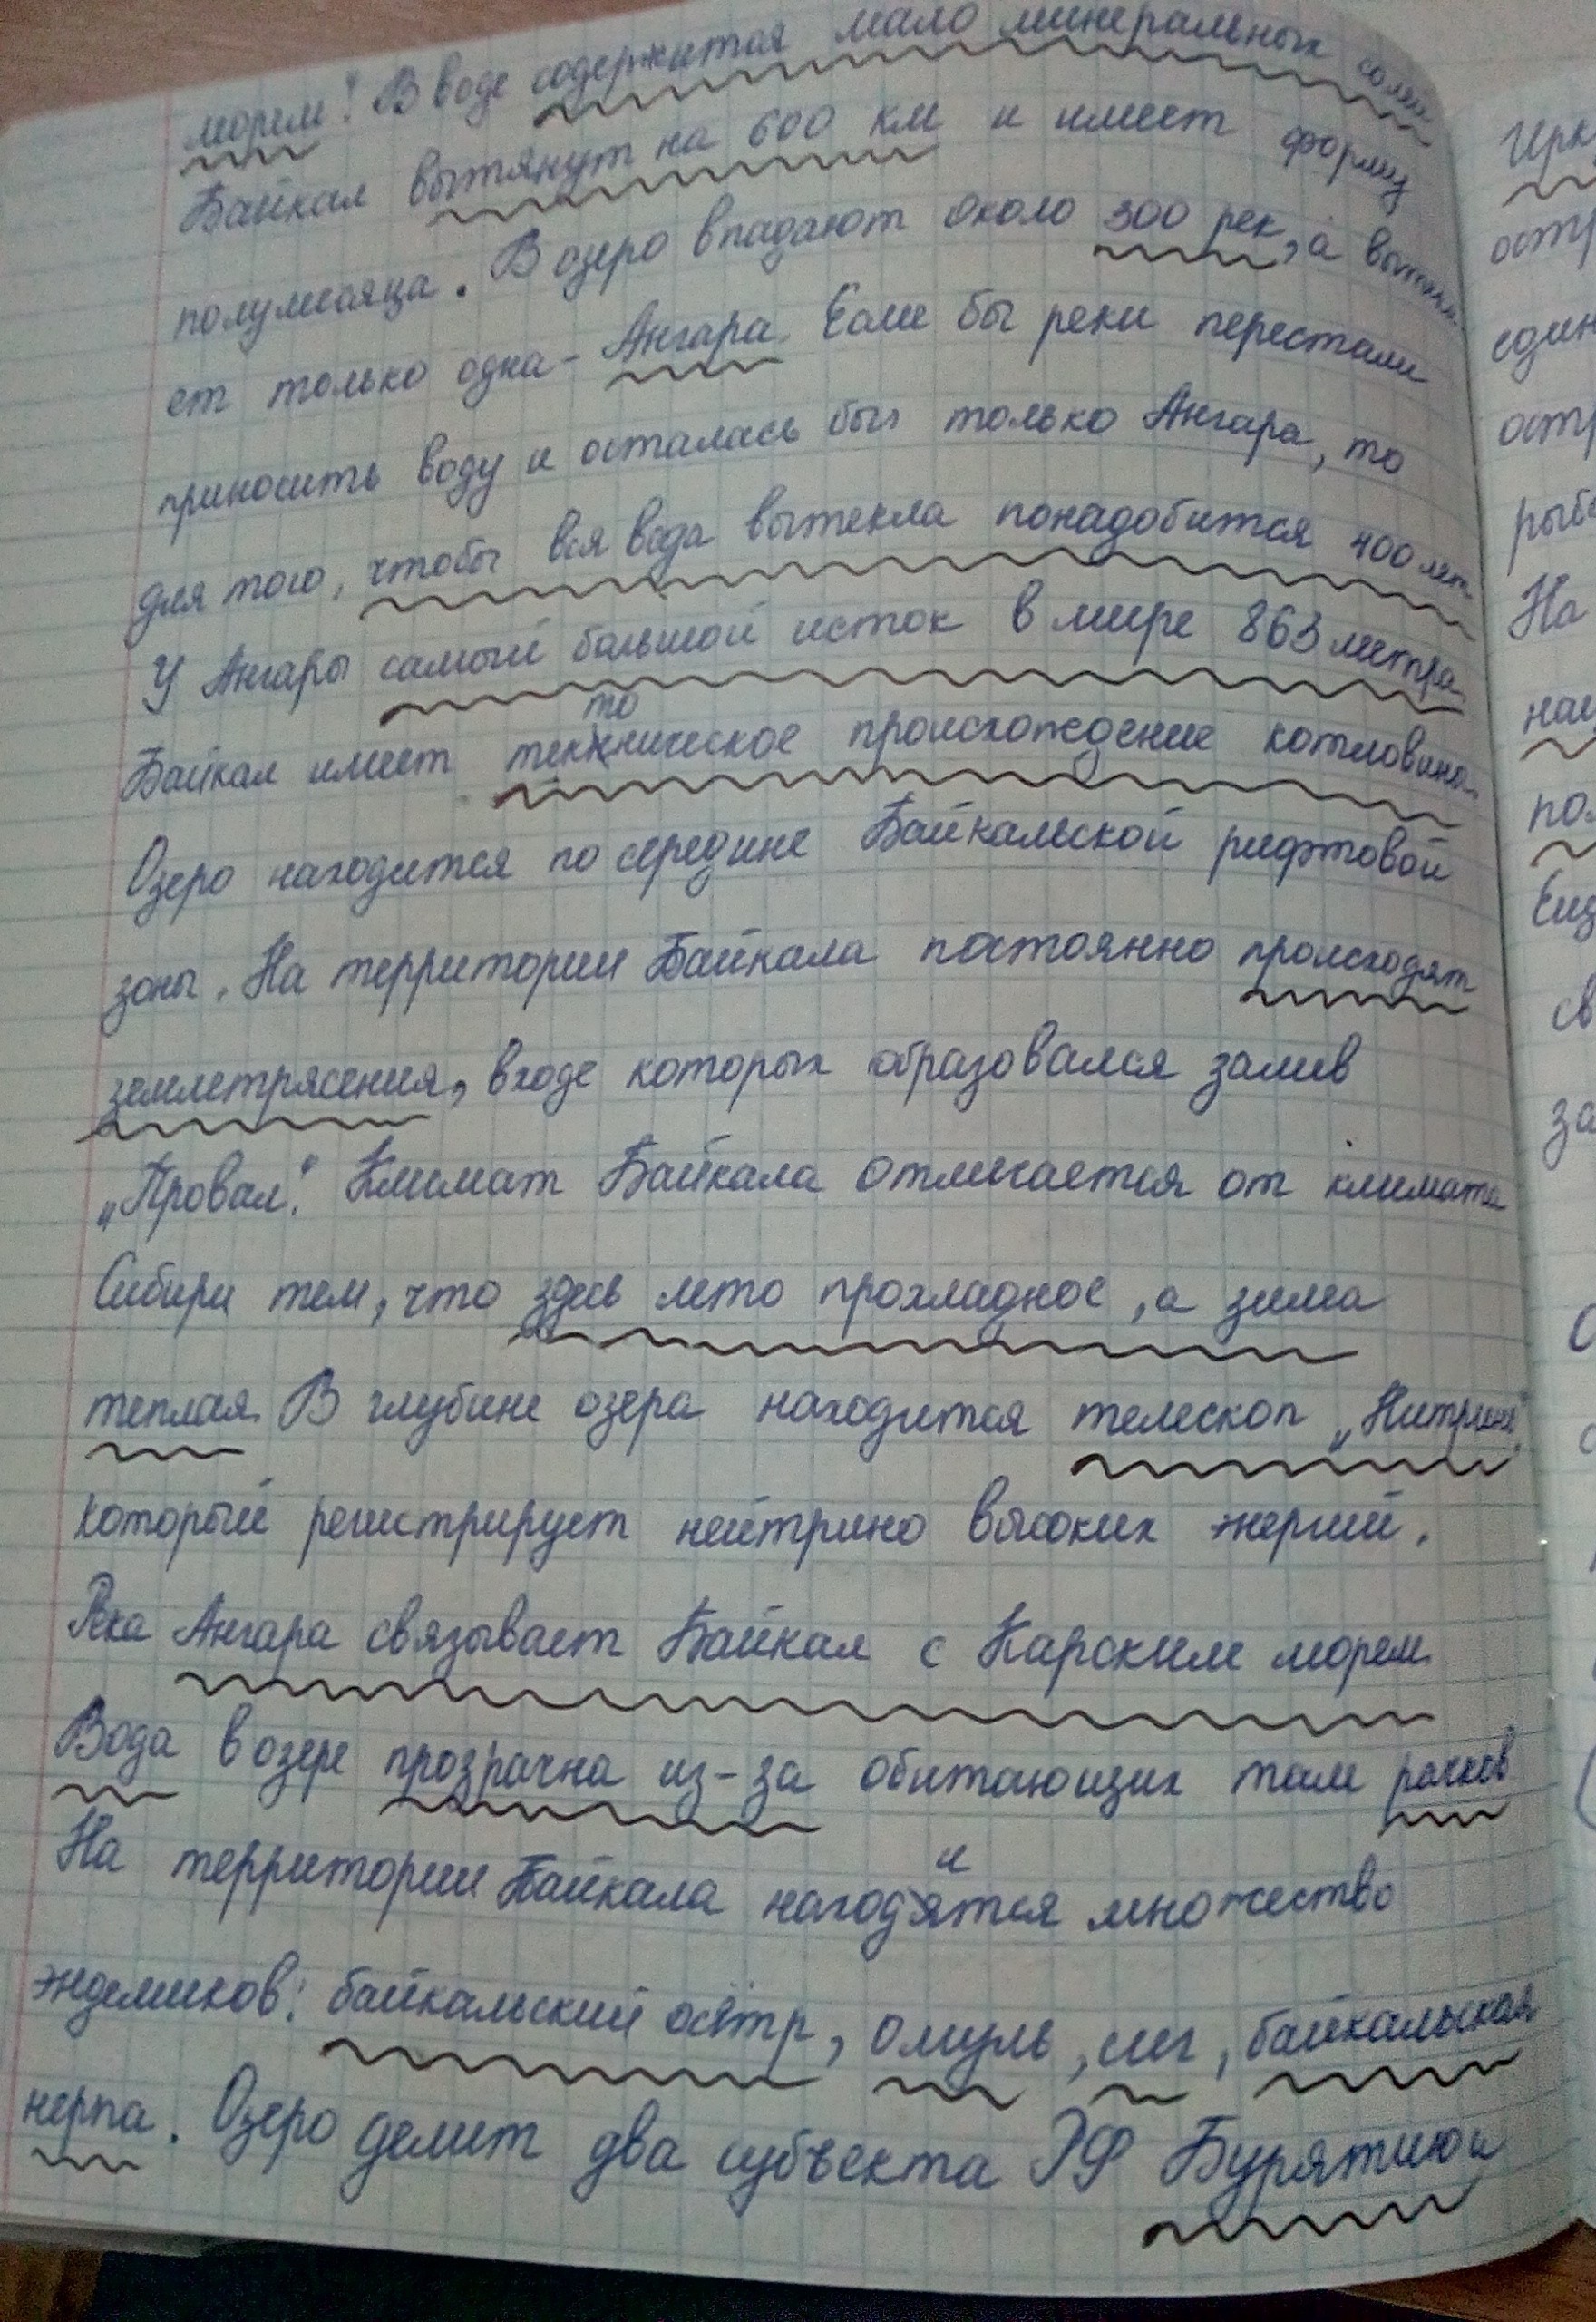 морем". В воде содержится мало минеральных солей
Байкал вытянут на 600 км и имеет форму
полумесяца. В озеро впадают около 300 рек, а вытека-
ет только одна - Ангара. Если бы реки перестали
приносить воду и осталась бы только Ангара, то
для того, чтобы вся вода вытекла понадобится 400 лет
У Ангары самый большой исток в мире 863 метра
Байкал имеет тектоническое происхождение котловины.
Озеро находится по середине Байкальской рифтовой
зоны. На территории Байкала постоянно происходят
землетрясения, входе которых образовался залив
„Провал". Климат Байкала отличается от климата
Сибири тем, что здесь лето прохладное, а зима
теплая. В глубине озера находится телескоп „Нитрино"
который регистрирует нейтрино высоких энергий.
Река Ангара связывает Байкал с Карским морем.
Вода в озере прозрачна из-за обитающих там рачков
На территории Байкала находится множество
эндемиков: байкальский осётр, омуль, сиг, байкальская
нерпа. Озеро делит два субъекта РФ Бурятию и
Ирк
остр
един
остр
рыб
На
наи
по
Ещ
св
за